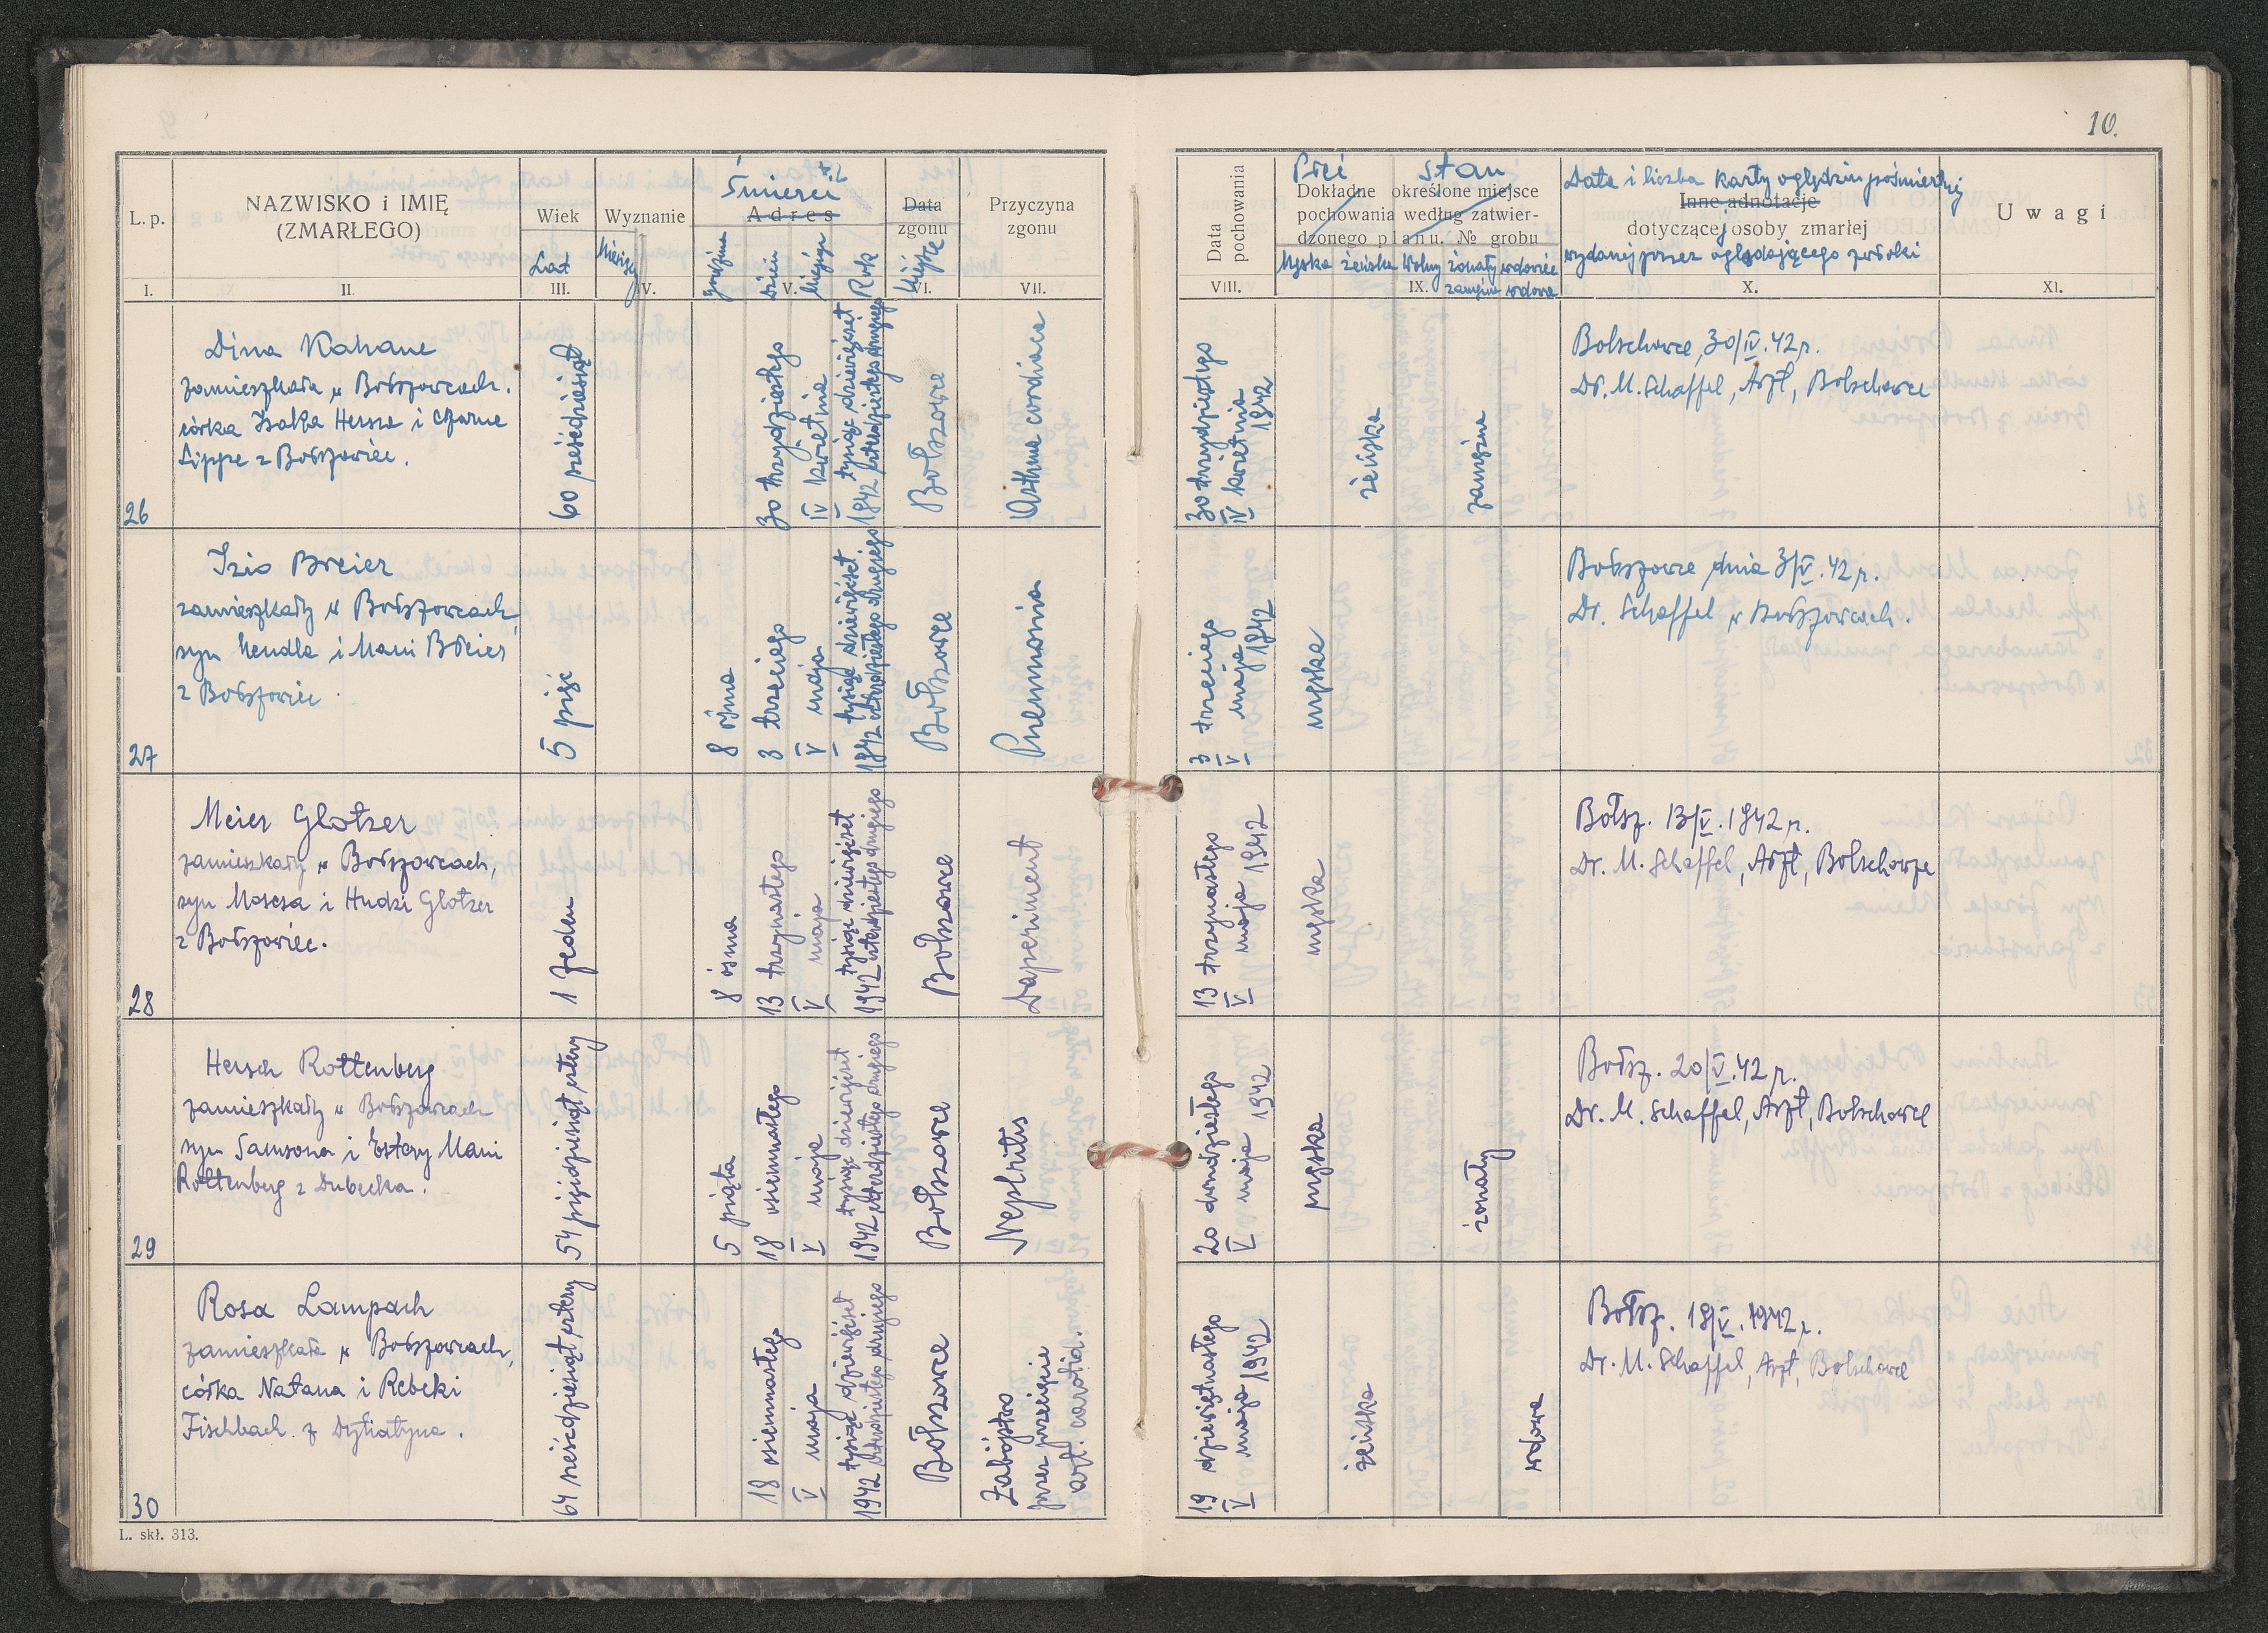 10.
L. p.
NAZWISKO i IMIĘ
(ZMARŁEGO)
Wiek
Lat
Wyznanie
Miesięcy
Śmierci
Adres
godzina
dzień
Miesiąc
Rok
Data
zgonu
Miejsce
Przyczyna
zgonu
Data
pochowania
Płeć
stan
Dokładne określone miejsce
pochowania według zatwier-
dzonego planu. № grobu
Męska żeńska Wolny żonaty wdowiec
zamężna wdowa
Data i liczba karty oględzin pośmiertnej
Inne adnotacje
dotyczące osoby zmarłej
wydanej przez oglądającego zwłoki
Uwagi
I. II. III. IV. V. VI. VII. VIII. IX. X. XI.
26
Dina Kahane
zamieszkała w Bołszowcach.
córka Izaka Hersza i Czarne
Lippe z Bołszowiec.
60 sześćdziesiąt
30 trzydziestego
IV kwietnia
tysiąc dziewięćset
1942 czterdziestego drugiego
Bołszowce
Asthma cordiaca
30 trzydziestego
IV kwietnia 1942
żeńska
zamężna
Bolschowce, 30/IV.42 r.
Dr. M. Schaffel, Arzt, Bolschowce
27
Izio Breier
zamieszkały w Bołszowcach,
syn Hendla i Mani Breier
z Bołszowiec.
5 pięć
8 ósma
3 trzeciego
V maja
tysiąc dziewięćset
1942 czterdziestego drugiego
Bołszowce
Pneumonia
3 trzeciego
V maja 1942
męska
Bołszowce dnia 3/V.42 r.
Dr. Schaffel w Bołszowcach.
28
Meier Glotzer
zamieszkały w Bołszowcach,
syn Mosesa i Hudzi Glotzer
z Bołszowiec.
1 Jeden
8 ósma
13 trzynastego
V maja
tysiąc dziewięćset
1942 czterdziestego drugiego
Bołszowce
13 trzynastego
V maja 1942
męska
Bołsz. 13/V.1942 r.
Dr. M. Schaffel, Arzt, Bolschowce
29
Hersch Rottenberg
zamieszkały w Bołszowcach
syn Samsona i Estery Mani
Rottenberg z Dubecka.
54 pięćdziesiąt cztery
5 piąta
18 osiemnastego
V maja
tysiąc dziewięćset
1942 czterdziestego drugiego
Bołszowce
Nephritis
20 dwudziestego
V maja 1942
męska
żonaty
Bołsz. 20/V.42 r.
Dr. M. Schaffel, Arzt, Bolschowce
30
Rosa Lampach
zamieszkała w Bołszowcach,
córka Natana i Rebeki
Fischbach z Dytiatyna.
64 sześćdziesiąt cztery
18 osiemnastego
V maja
tysiąc dziewięćset
1942 czterdziestego drugiego
Bołszowce
Zabójstwo
przez przecięcie
art. carotid.
19 dziewiętnastego
V maja 1942
żeńska
wdowa
Bołsz. 18/V.1942 r.
Dr. M. Schaffel, Arzt, Bolschowce
L. skł. 313.